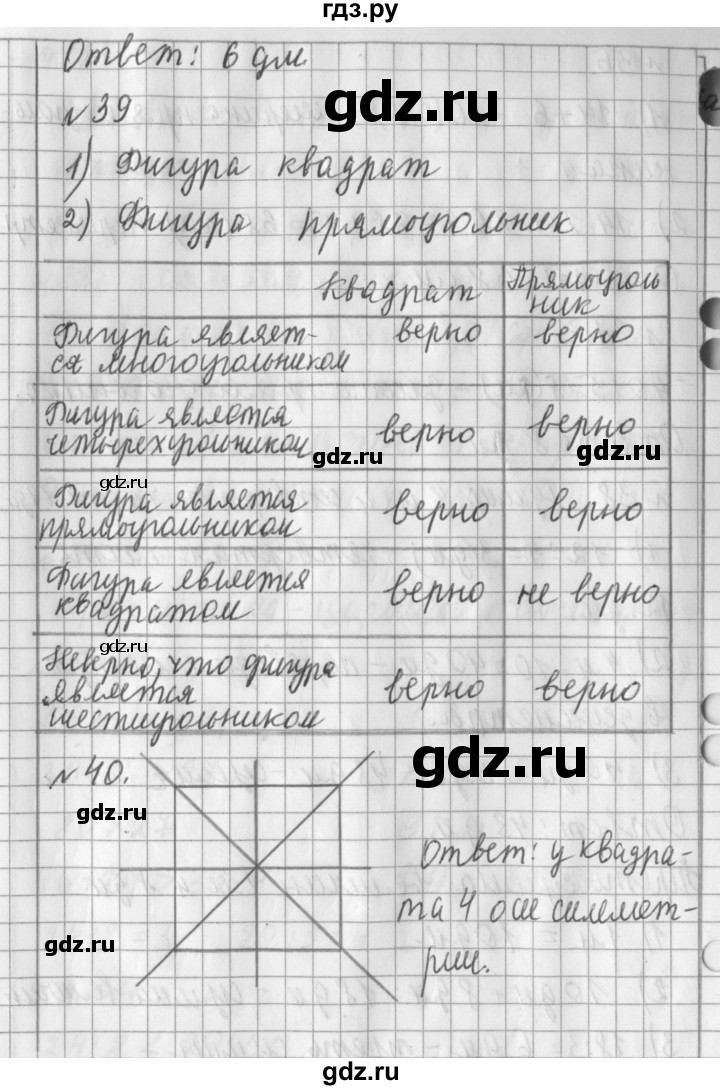 гдз.ру
Ответ: 6 дм
gdz.ru
№ 39
1) Фигура квадрат
2) Фигура прямоугольник
Квадрат Прямоуголь
ник
Фигура являет-
ся многоугольником верно верно
Фигура является
четырехугольником верно верно
gdz.ru gdz.ru
gdz.ru
Фигура является
прямоугольником верно верно
Фигура является
квадратом верно не верно
gdz.ru
Неверно, что фигура
является верно верно
шестиугольником
№ 40. gdz.ru
gdz.ru
Ответ: у квадра-
та 4 оси симмет-
gdz.ru
рии.
gdz.ru